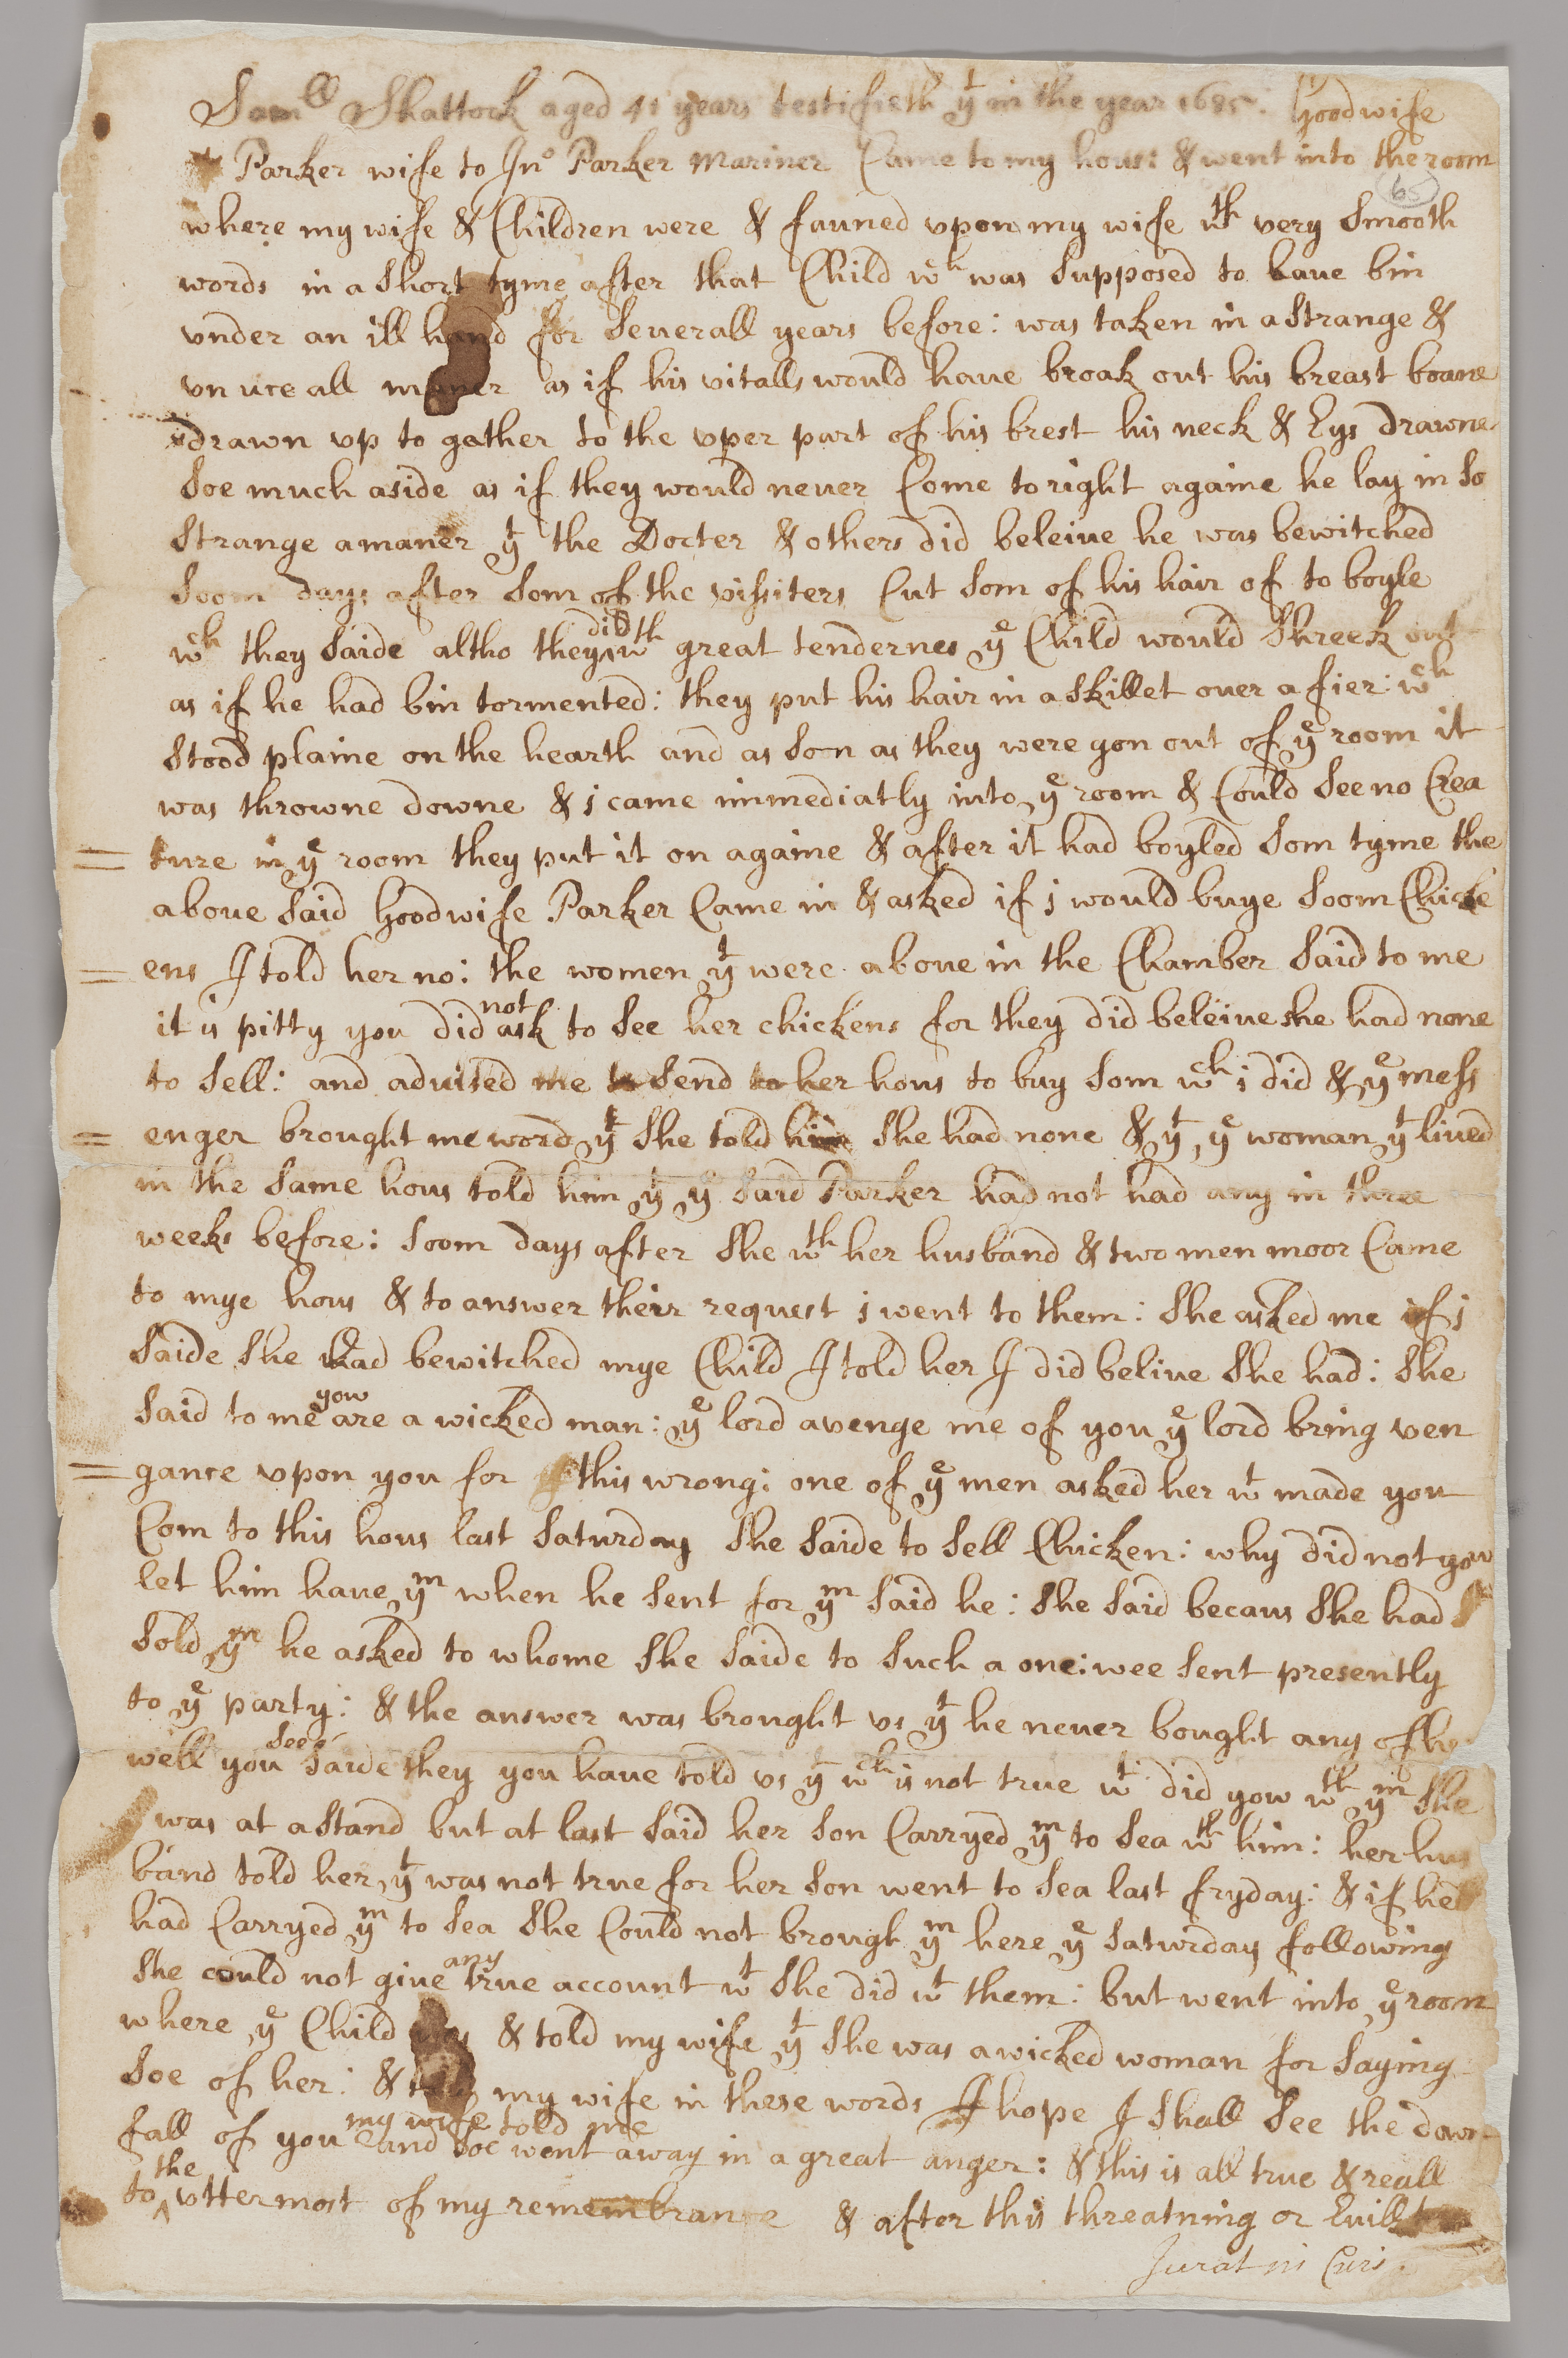 Sam^ll Shattock aged 41 years testifieth y^t in the year 1685: Goodwife
Parker wife to Jn^o Parker Mariner Came to my hous: & went into the room
65
where my wife & Children were & fauned vpon my wife w^th very Smooth
words in a Short tyme after that Child w^ch was Supposed to haue bin
vnder an ill hand for Seuerall years before: was taken in a Strange &
vn vce all maner as if his vitalls would haue broak out his breast boane
drawn vp to gather to the vper part of his brest his neck & Eys drawne
Soe much aside as if they would neuer Come to right againe he lay in So
Strange a maner y^t the Docter & others did beleiue he was bewitched
Soom days after Som of the vissiters Cut Som of his hair of to boyle
w^ch they Saide altho they did w^th great tendernes y^e Child would Shreek out
as if he had bin tormented: they put his hair in a Skillet ouer a fier: w^ch
Stood plaine on the hearth and as Son as they were gon out of y^e room it
was throwne downe & i came immediatly into y^e room & Could See no Crea
ture in y^e room they put it on againe & after it had boyled Som tyme the
aboue Said Goodwife Parker Came in & asked if i would buye Soom Chicke
ens I told her no: the women y^t were aboue in the Chamber Said to me
it is pitty you did not ask to See her chickens for they did beleiue she had none
to Sell: and aduised me to Send to her hous to buy Som w^ch i did & y^e mess
enger brought me word y^t She told him She had none & y^t y^e woman y^t liued
in the Same hous told him y^t y^e Said Parker had not had any in three
weeks before: Soom days after She w^th her husband & two men moor Came
to mye hous & to answer their request i went to them: She asked me if i
Saide She had bewitched mye Child I told her I did beliue She had: She
Said to me yow are a wicked man: y^e lord avenge me of you y^e lord bring ven
gance vpon you for this wrong: one of y^e men asked her w^t made you
Com to this hous last Saturday She Saide to Sell Chicken: why did not yow
let him haue y^m when he Sent for y^m Said he: She Said becaus She had
Sold y^m he asked to whome She Saide to Such a one: wee Sent presently
to y^e party: & the answer was brought vs y^t he neuer bought any of he
well you See Saide they you haue told vs y^t w^ch is not true w^t did yow w^th y^m She
was at a Stand but at last Said her Son Carryed y^m to Sea w^th him: her hus
band told her y^t was not true for her Son went to Sea last fryday: & if he
had Carryed y^m to Sea She Could not brough y^m here y^e Saturday following
She could not giue any true account w^t She did w^t them: but went into y^e room
where y^e Child was & told my wife y^t She was a wicked woman for Saying
Soe of her: & my wife in these words I hope I Shall See the down
fall of you my wife told me and Soe went away in a great anger: & this is all true & reall
to the vttermost of my remembrance & after this threatning or Euill
Jurat in Curia